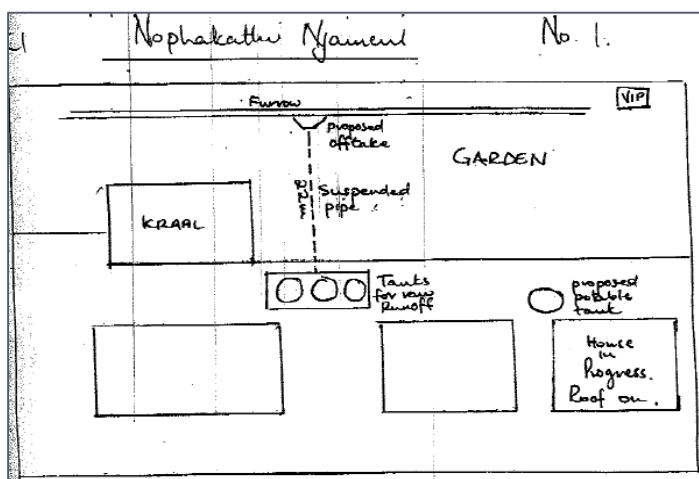 Nophakathi
No. 1.
Furrow
VIP
proposed
offtake
GARDEN
KRAAL
Suspended
pipe
Tanks
for raw
Runoff
proposed
potable
tank
House
in
Progress.
Roof on.